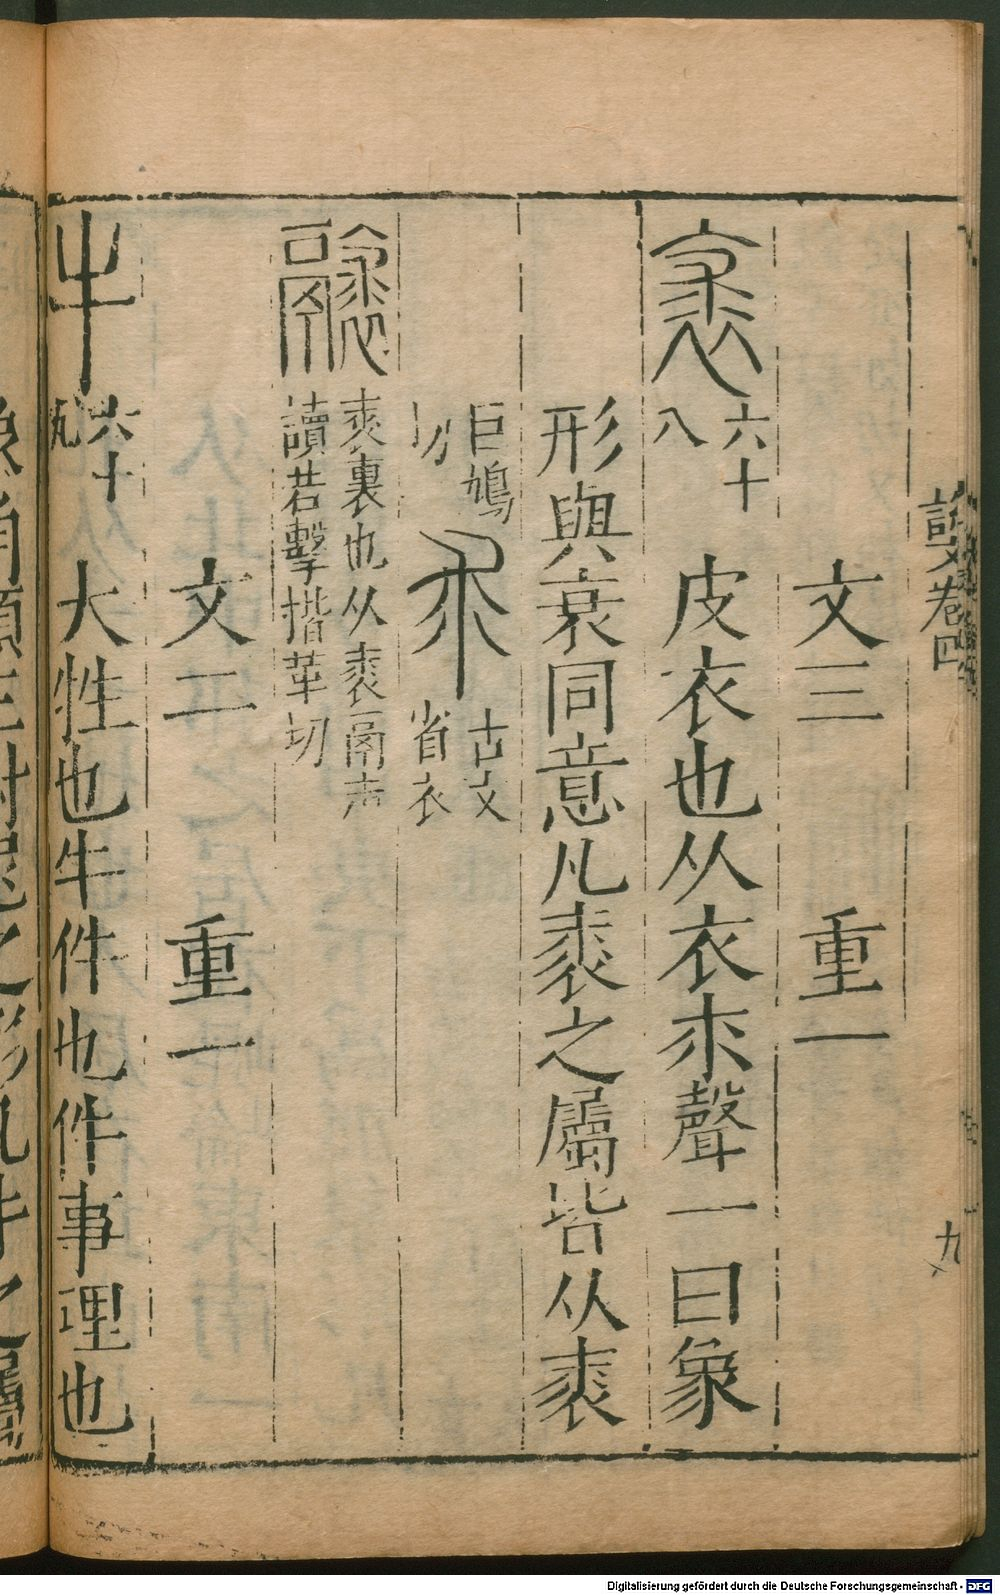 說文卷四
九
文三 重一
裘 六十八 皮衣也从衣求聲一曰象
形與衰同意凡裘之屬皆从裘
巨鳩切 求 古文省衣
裘裏也从裘鬲声讀若擊揩革切
文二 重一
牛 六十九 大牲也牛件也件事理也
Digitalisierung gefördert durch die Deutsche Forschungsgemeinschaft - DFG